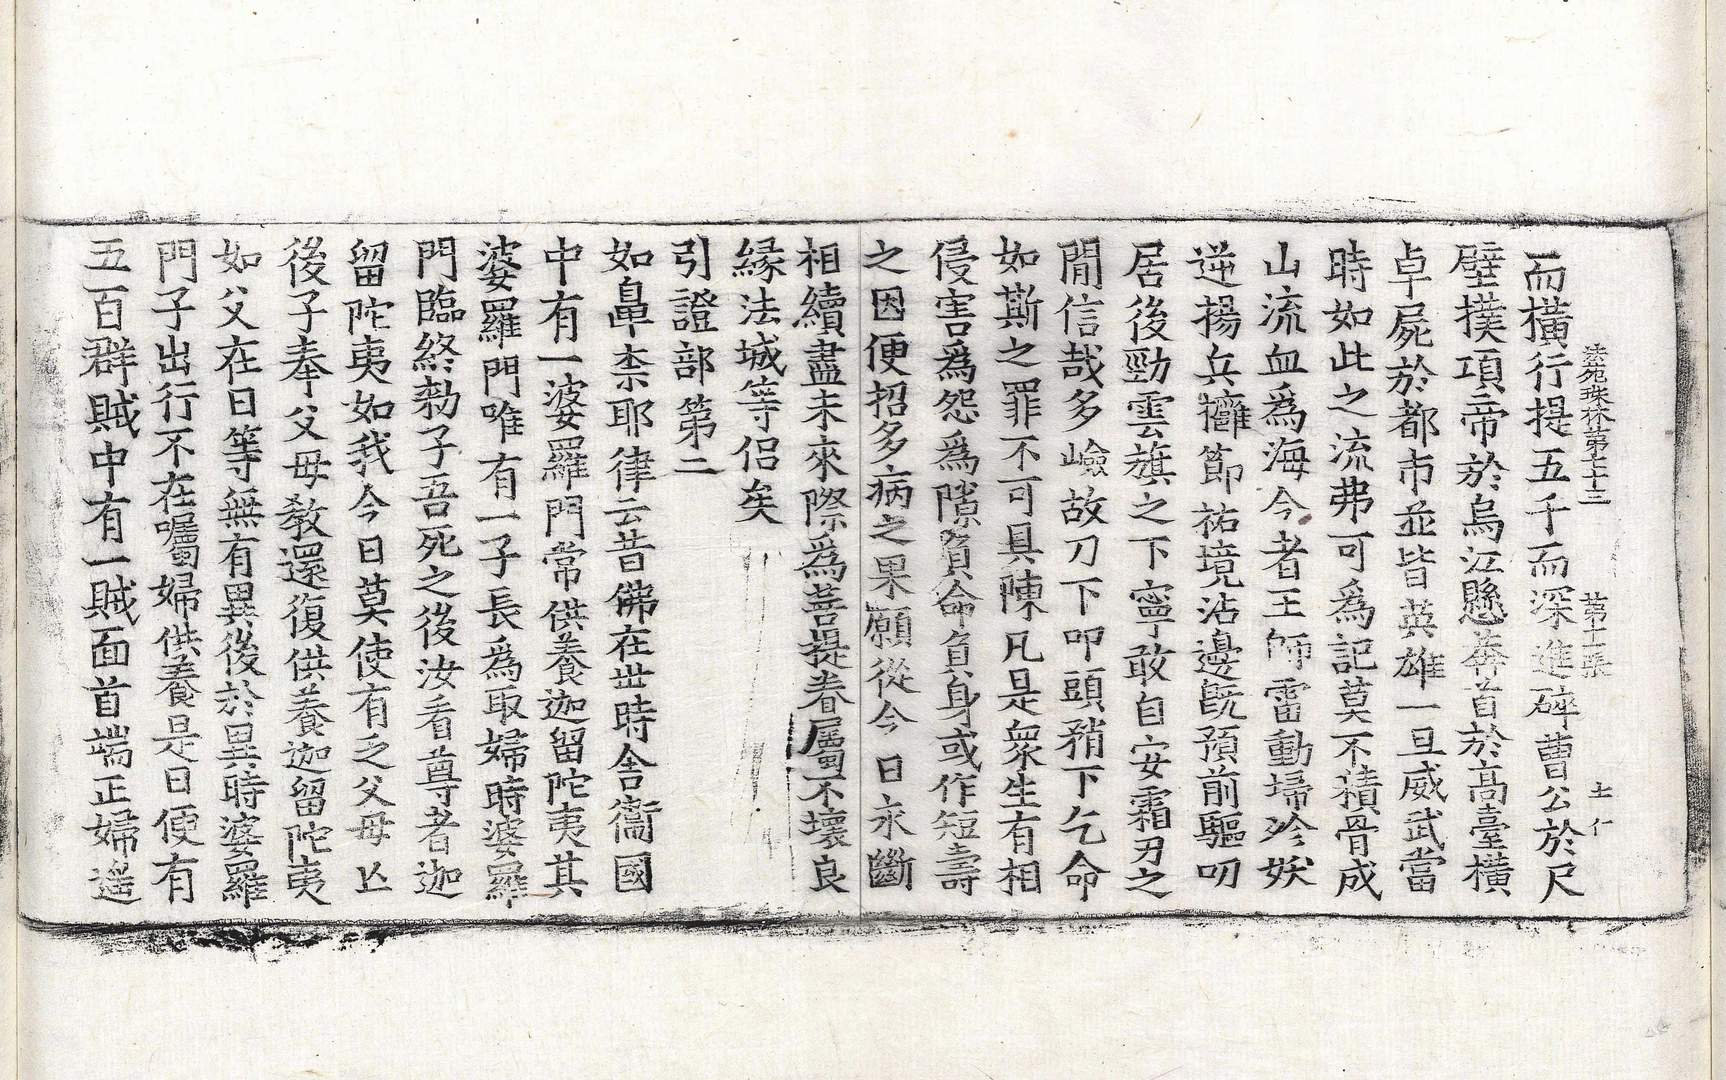 法苑珠林第七十三 第十一張 土 仁
而橫行提五千而深進碎曹公於尺
壁撲項帝於烏江懸莾首於高臺橫
卓屍於都市並皆英雄一旦威武當
時如此之流弗可為記莫不積骨成
山流血為海今者王師雷動掃殄妖
逆揚兵擁節祐境沾邊旣預前驅叨
居後勁雲旗之下寧敢自安霜刃之
閒信哉多嶮故刀下叩頭矟下乞命
如斯之罪不可具陳凡是衆生有相
侵害爲怨爲隙負命負身或作短壽
之因便招多病之果願從今日永斷
相續盡未來際爲菩提眷屬不壞良
緣法城等侶矣
引證部第二
如鼻柰耶律云昔佛在世時舍衞國
中有一婆羅門常供養迦留陀夷其
婆羅門唯有一子長爲取婦時婆羅
門臨終勑子吾死之後汝看尊者迦
留陀夷如我今日莫使有乏父母亡
後子奉父母敎還復供養迦留陀夷
如父在日等無有異後於異時婆羅
門子出行不在囑婦供養是日便有
五百群賊中有一賊面首端正婦遥